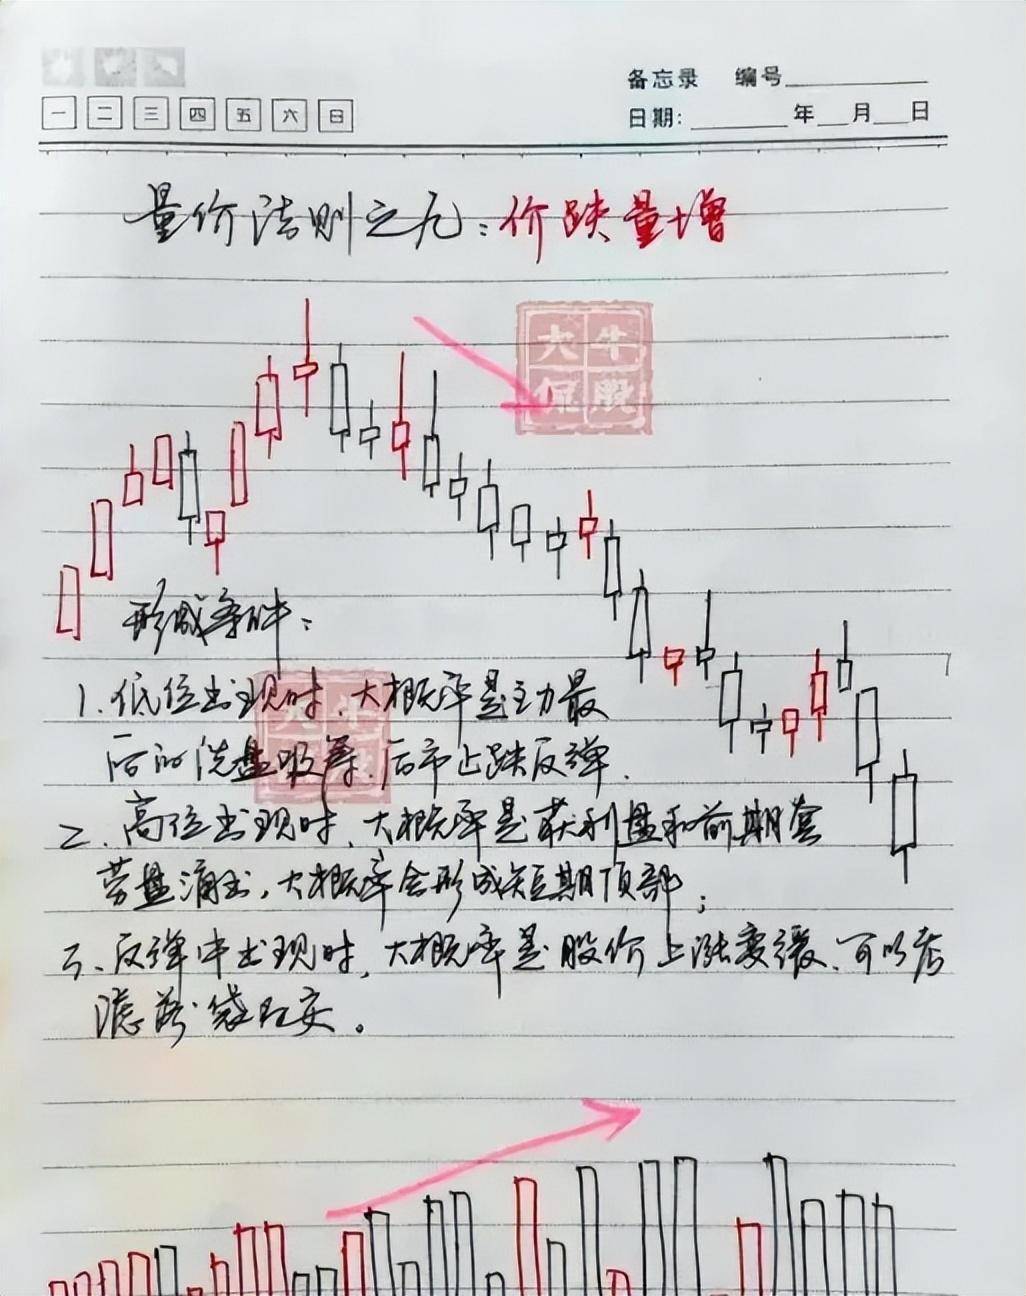 备忘录 编号
一 二 三 四 五 六 日
日期: 年 月 日
量价法则之九：价跌量增
大牛
侃股
形成条件：
1、低位出现时、大概率是主力最
后的洗盘吸筹、后市止跌反弹、
2、高位出现时、大概率是获利盘和前期套
劳盘涌出，大概率会形成短期顶部；
3、反弹中出现时，大概率是股价上涨变缓、可以考
虑落袋为安。